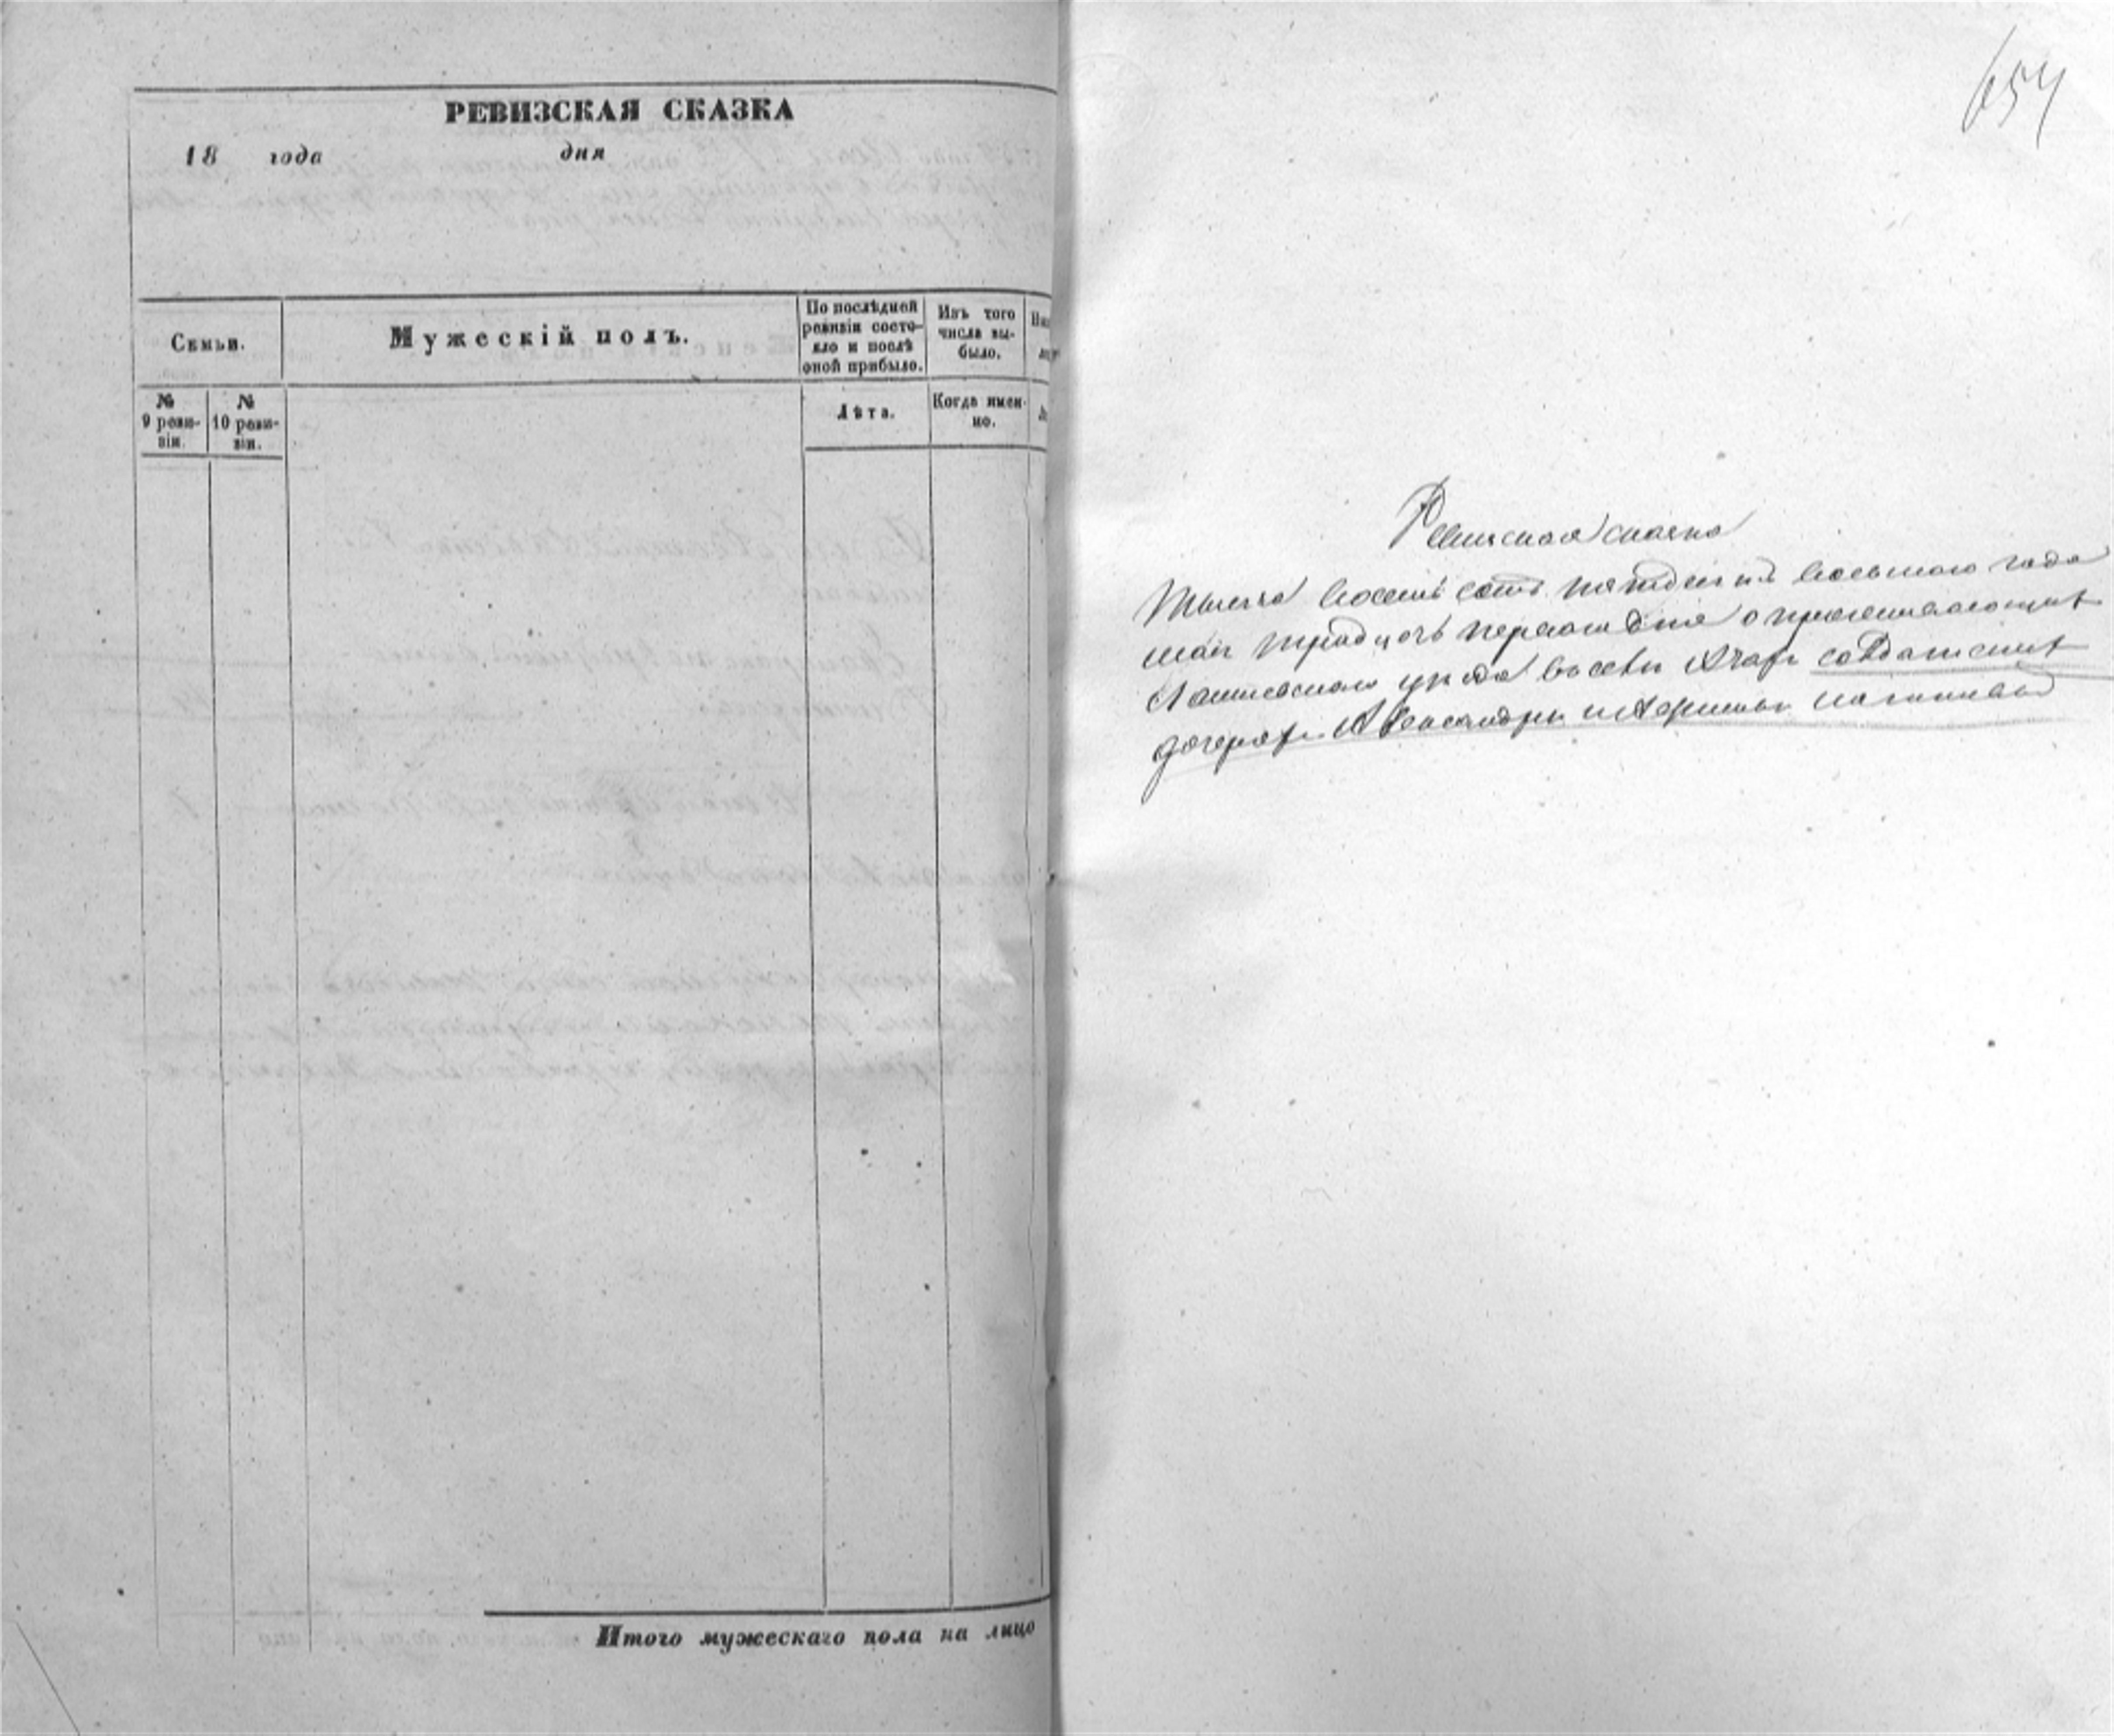 РЕВИЗСКАЯ СКАЗКА
18 года дня
Семьи.
Мужескій полъ.
По послѣдней ревизіи состояло и послѣ оной прибыло.
Изъ того числа выбыло.
№ 9 ревизіи.
№ 10 ревизіи.
Лѣта.
Когда именно.
Итого мужескаго пола на лицо
654
Ревиская сказка
Тысеча восемь сотъ пятдесятъ восьмого года
маія тридцоть первого дня о проживающихъ
Лаишевскаго уезда въ селѣ салдатскихъ
дочеряхъ Александрѣ